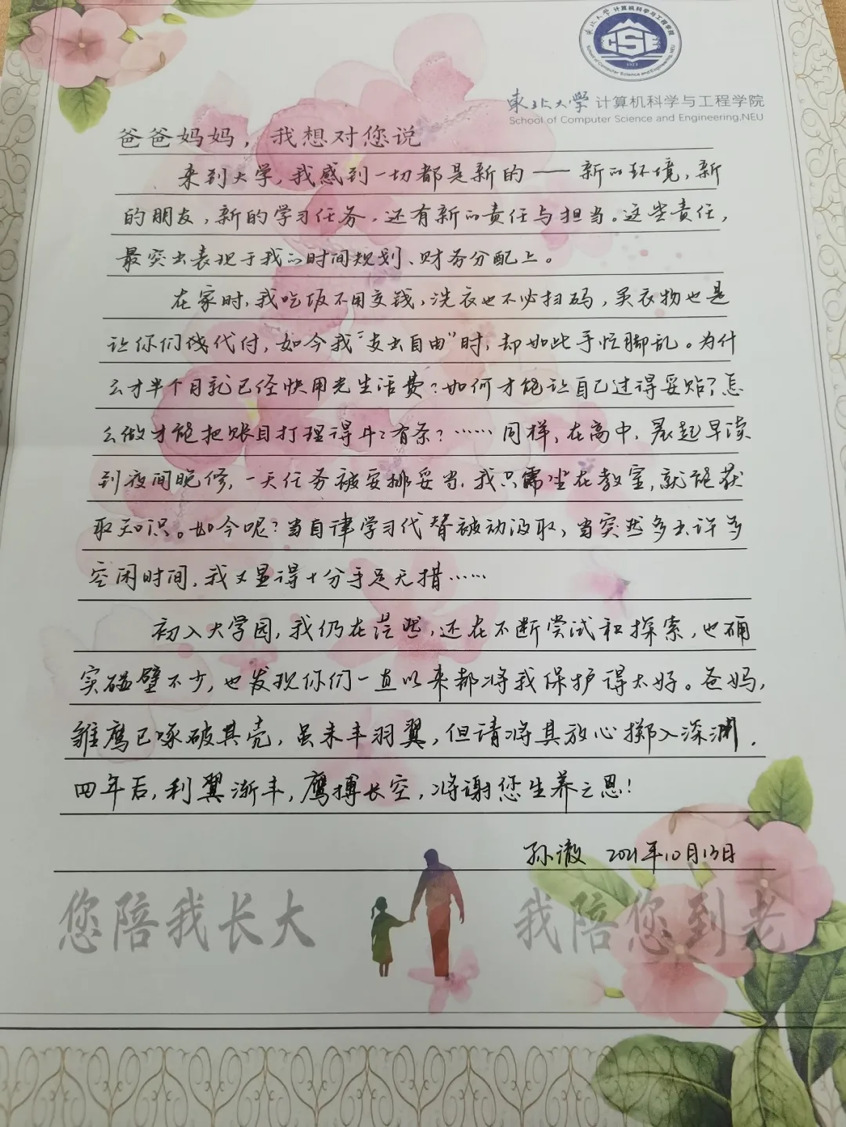 东北大学 计算机科学与工程学院
CSE
东北大学 计算机科学与工程学院
School of Computer Science and Engineering.NEU
爸爸妈妈，我想对您说
来到大学，我感到一切都是新的——新的环境，新
的朋友，新的学习任务，还有新的责任与担当。这些责任，
最突出表现于我的时间规划、财务分配上。
在家时，我吃饭不用交钱，洗衣也不必扫码，买衣物也是
让你们找代付，如今我“支出自由”时，却如此手忙脚乱。为什
么才半个月就已经快用光生活费？如何才能让自己过得妥贴？怎
么做才能把账目打理得井井有条？……同样，在高中，晨起早读
到夜间晚修，一天任务被安排妥当，我只需坐在教室，就能获
取知识。如今呢？当自律学习代替被动汲取，当突然多出许多
空闲时间，我又显得十分手足无措……
初入大学园，我仍在茫然，还在不断尝试和探索，也确
实碰壁不少，也发现你们一直以来都将我保护得太好。爸妈，
雏鹰已啄破其壳，虽未丰羽翼，但请将其放心掷入深渊，
四年后，利翼渐丰，鹰搏长空，将谢您生养之恩！
孙 2021年10月13日
您陪我长大 我陪您到老